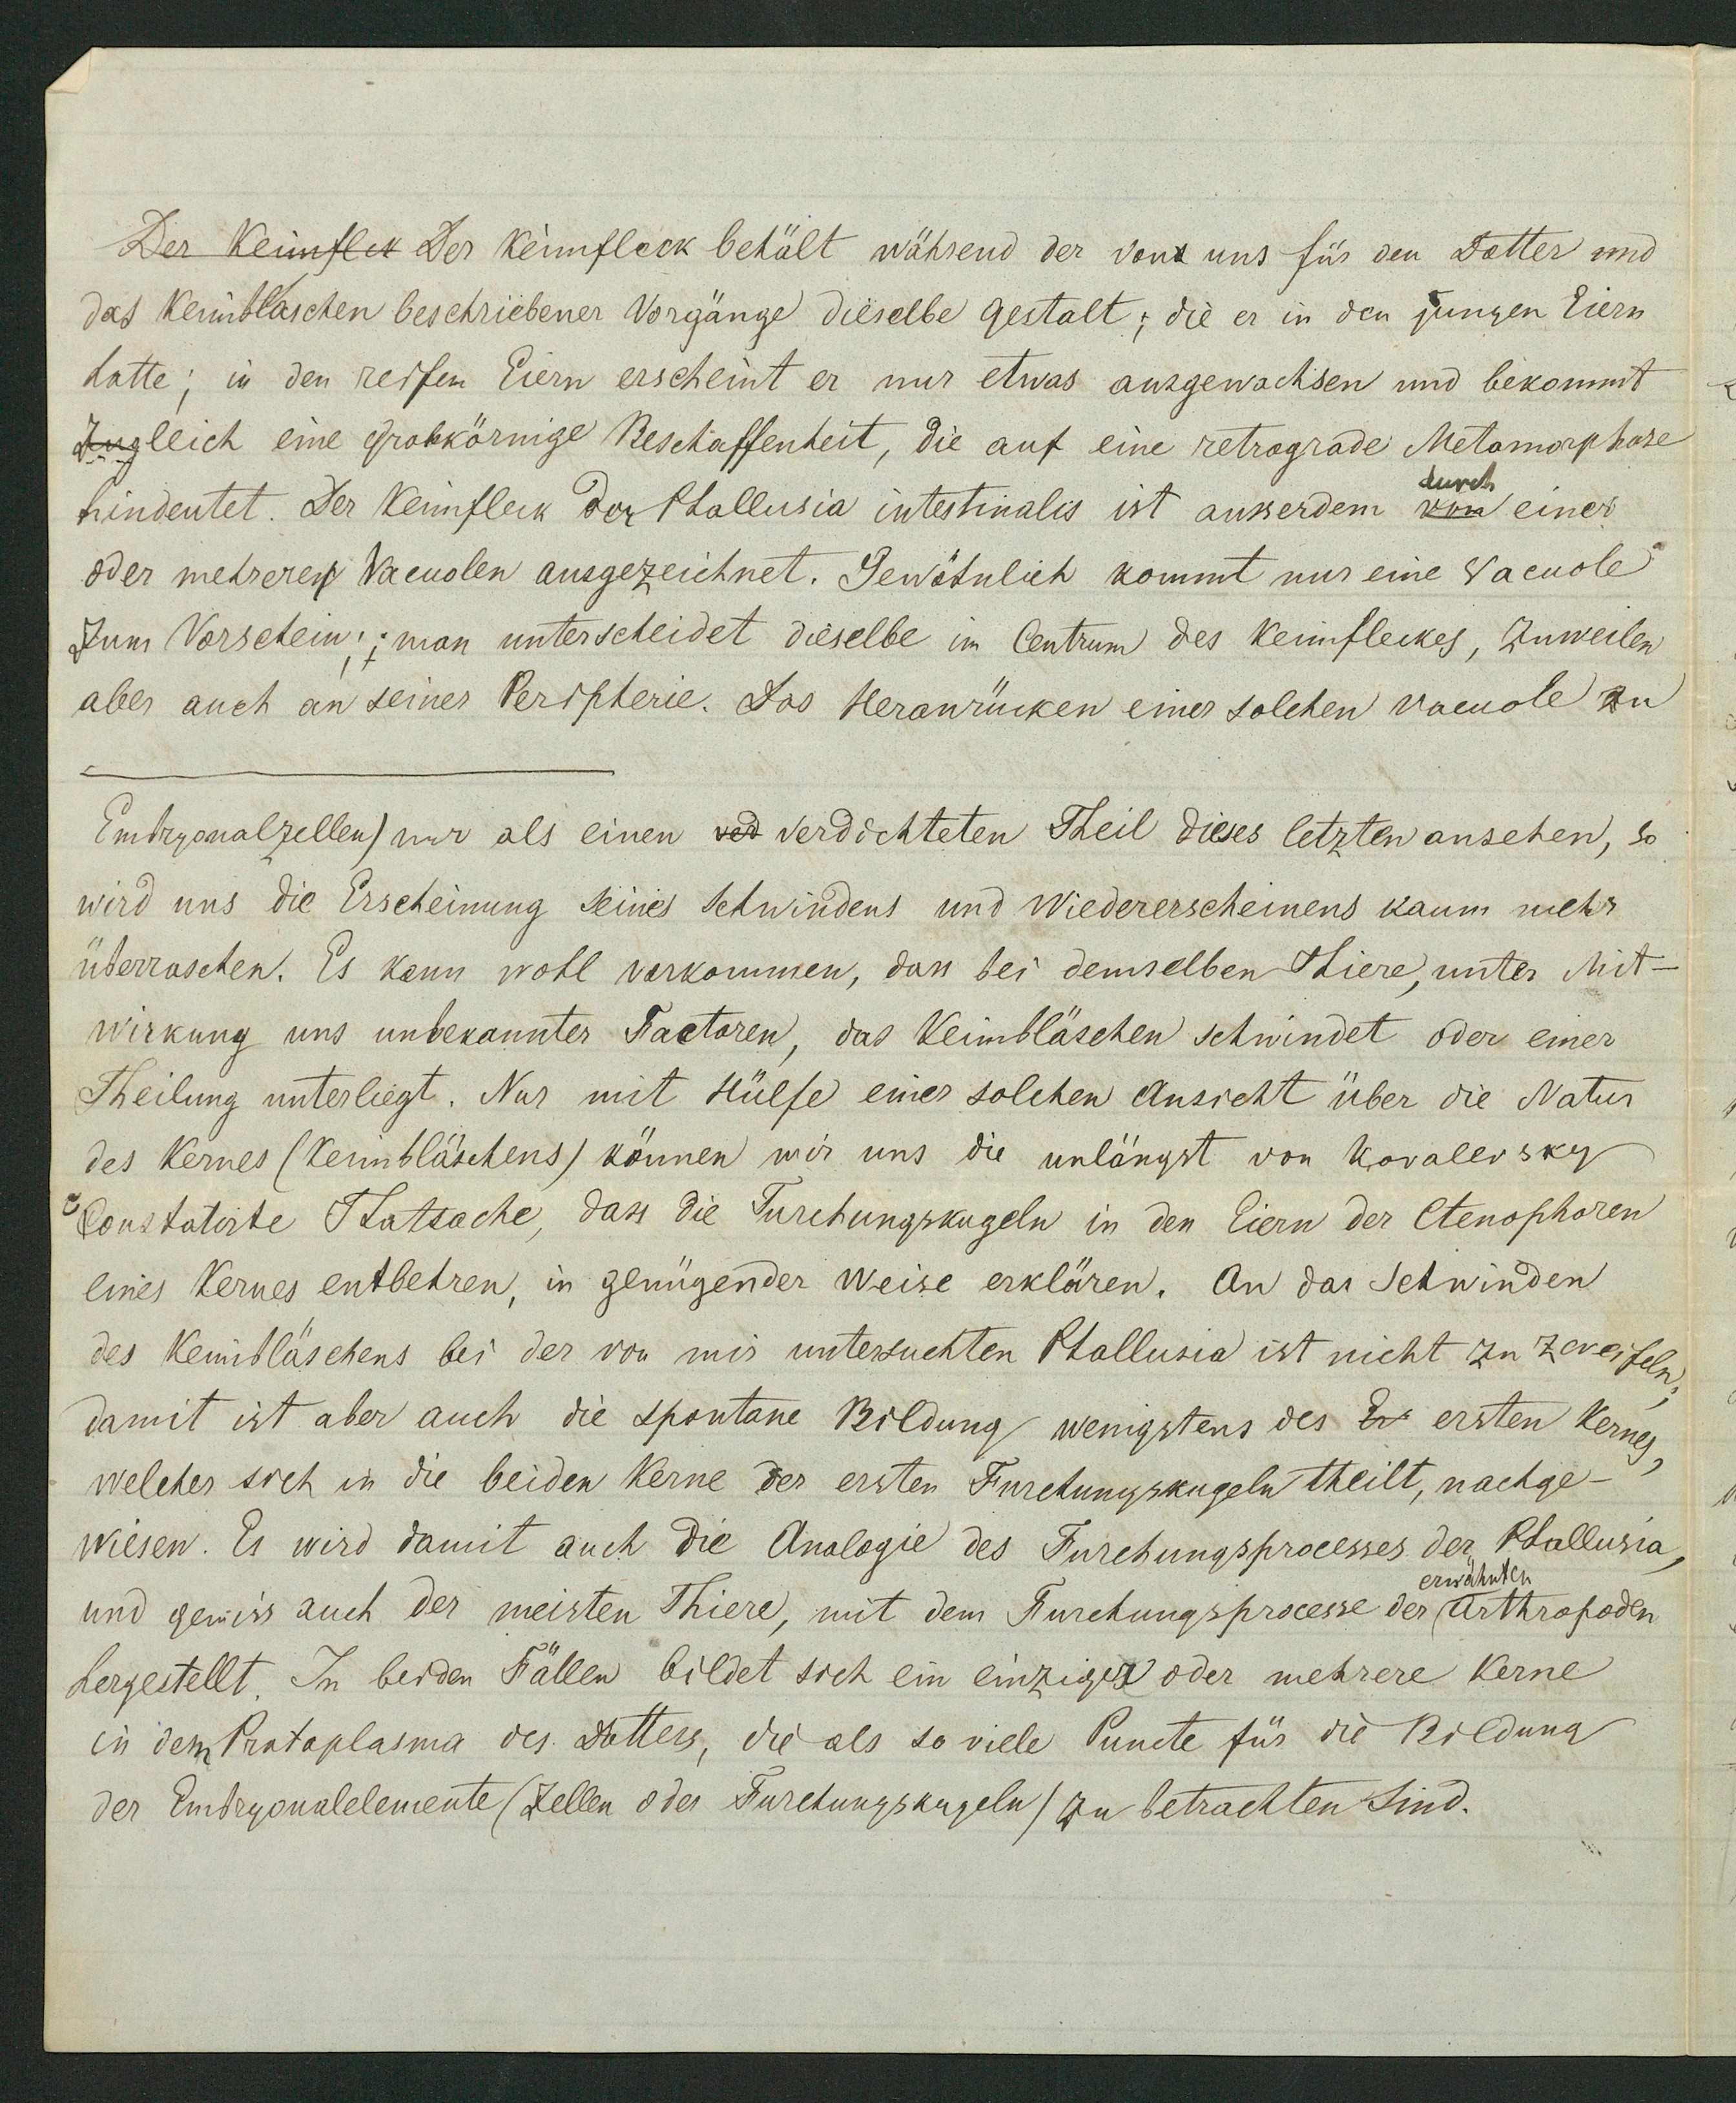 Der Keimfleck Der Keimfleck behält während der von uns für den Dotter und
das Keimbläschen beschriebener Vorgänge dieselbe Gestalt; die er in den jungen Eiern
hatte; in den reifen Eiern erscheint er nur etwas ausgewachsen und bekommt
zugleich eine grobkörnige Beschaffenheit, die auf eine retrograde Metamorphose
durch
hindeutet. Der Keimfleck der Phallusia intestinalis ist ausserdem von einer
oder mehreren Vacuolen ausgezeichnet. Gewöhnlich kommt nur eine Vacuole
zum Vorschein; man unterscheidet dieselbe im Centrum des Keimfleckes, zuweilen
aber auch an seiner Peripherie. Das Heranrücken einer solchen Vacuole zu
Embryonalzellen) nur als einen ved verdichteten Theil dieses letzten ansehen, so
wird uns die Erscheinung seines Schwindens und Wiedererscheinens kaum mehr
überraschen. Es kann wohl vorkommen, dass bei demselben Thiere, unter Mit-
wirkung uns unbekannter Factoren, das Keimbläschen schwindet oder einer
Theilung unterliegt. Nur mit Hülfe einer solchen Ansicht über die Natur
des Kernes (Keimbläschens) können wir uns die unlängst von Kovalevsky
constatirte Thatsache, dass die Furchungskugeln in den Eiern der Ctenophoren
eines Kernes entbehren, in genügender Weise erklären. An das Schwinden
des Keimbläschens bei der von mir untersuchten Phallusia ist nicht zu zweifeln;
damit ist aber auch die spontane Bildung wenigstens des Er ersten Kernes,
welcher sich in die beiden Kerne der ersten Furchungskugeln theilt, nachge-
wiesen. Es wird damit auch die Analogie des Furchungsprocesses der Phallusia,
erwähnten
und gewiss auch der meisten Thiere, mit dem Furchungsprocesse der Arthropoden
hergestellt. In beiden Fällen bildet sich ein einziger oder mehrere Kerne
in dem Protoplasma des Dotters, die als so viele Puncte für die Bildung
der Embryonalelemente (Zellen oder Furchungskugeln) zu betrachten sind.